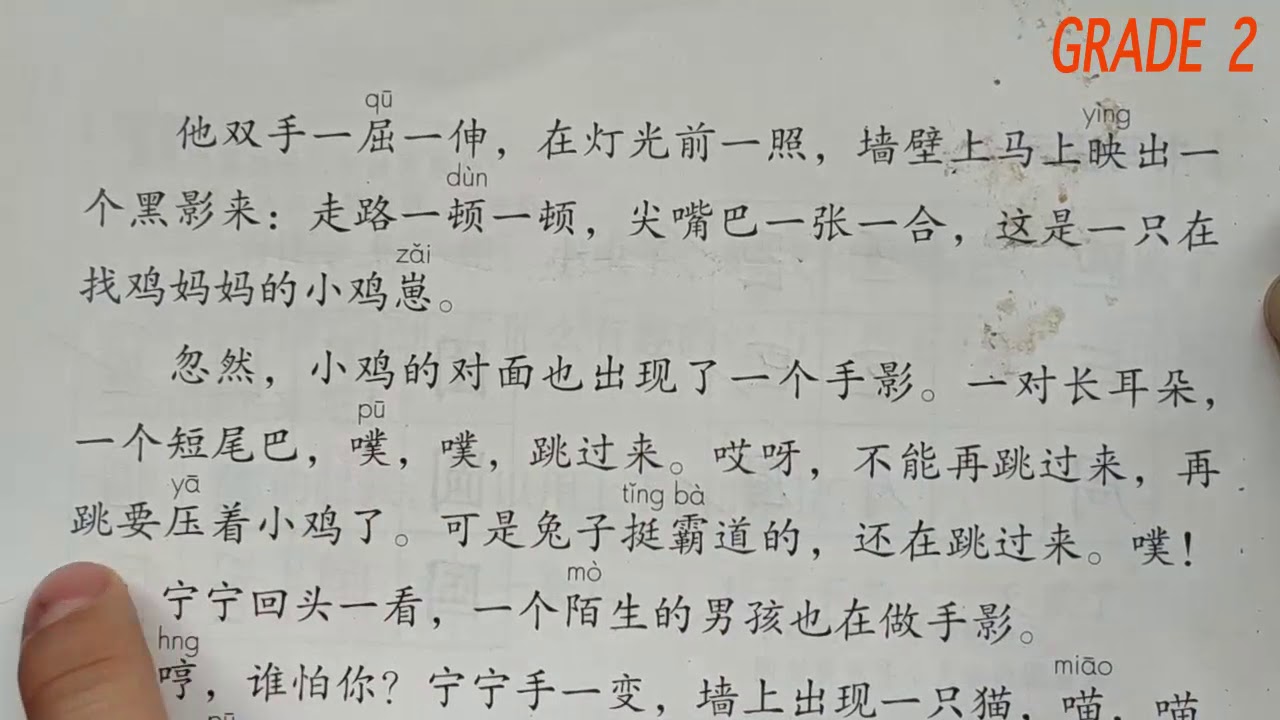 GRADE 2
qū yìng
他双手一屈一伸，在灯光前一照，墙壁上马上映出一
dùn
个黑影来：走路一顿一顿，尖嘴巴一张一合，这是一只在
zǎi
找鸡妈妈的小鸡崽。
忽然，小鸡的对面也出现了一个手影。一对长耳朵，
pū
一个短尾巴，噗，噗，跳过来。哎呀，不能再跳过来，再
yā tǐng bà
跳要压着小鸡了。可是兔子挺霸道的，还在跳过来。噗！
mò
宁宁回头一看，一个陌生的男孩也在做手影。
hng miāo
哼，谁怕你？宁宁手一变，墙上出现一只猫，喵，喵